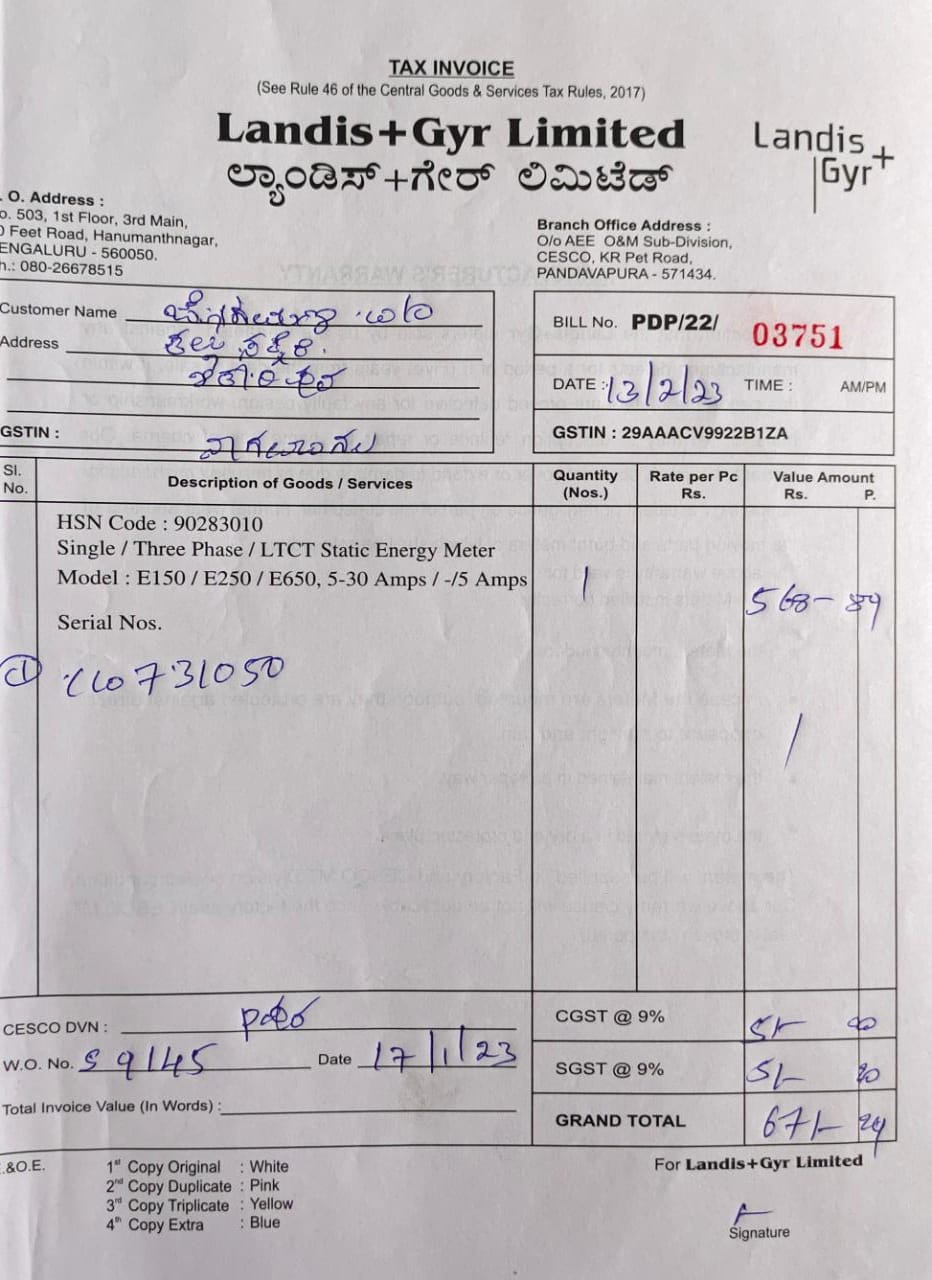 TAX INVOICE
(See Rule 46 of the Central Goods & Services Tax Rules, 2017)
Landis+Gyr Limited
ಲ್ಯಾಂಡಿಸ್+ಗೇರ್ ಲಿಮಿಟೆಡ್
Landis+
Gyr
. O. Address :
o. 503, 1st Floor, 3rd Main,
0 Feet Road, Hanumanthnagar,
ENGALURU - 560050.
h.: 080-26678515
Branch Office Address :
O/o AEE O&M Sub-Division,
CESCO, KR Pet Road,
PANDAVAPURA - 571434.
Customer Name
Address
GSTIN :
BILL No. PDP/22/ 03751
DATE : 13/2/23 TIME : AM/PM
GSTIN : 29AAACV9922B1ZA
Sl. No. Description of Goods / Services Quantity (Nos.) Rate per Pc Rs. Value Amount Rs. P.
HSN Code : 90283010
Single / Three Phase / LTCT Static Energy Meter
Model : E150 / E250 / E650, 5-30 Amps / -/5 Amps 1 568- 89
Serial Nos.
1 110731050
CESCO DVN :
W.O. No. S 9145 Date 17/1/23
Total Invoice Value (In Words) :
CGST @ 9% 51-
SGST @ 9% 51-
GRAND TOTAL 671-
.&O.E.
1st Copy Original : White
2nd Copy Duplicate : Pink
3rd Copy Triplicate : Yellow
4th Copy Extra : Blue
For Landis+Gyr Limited
Signature